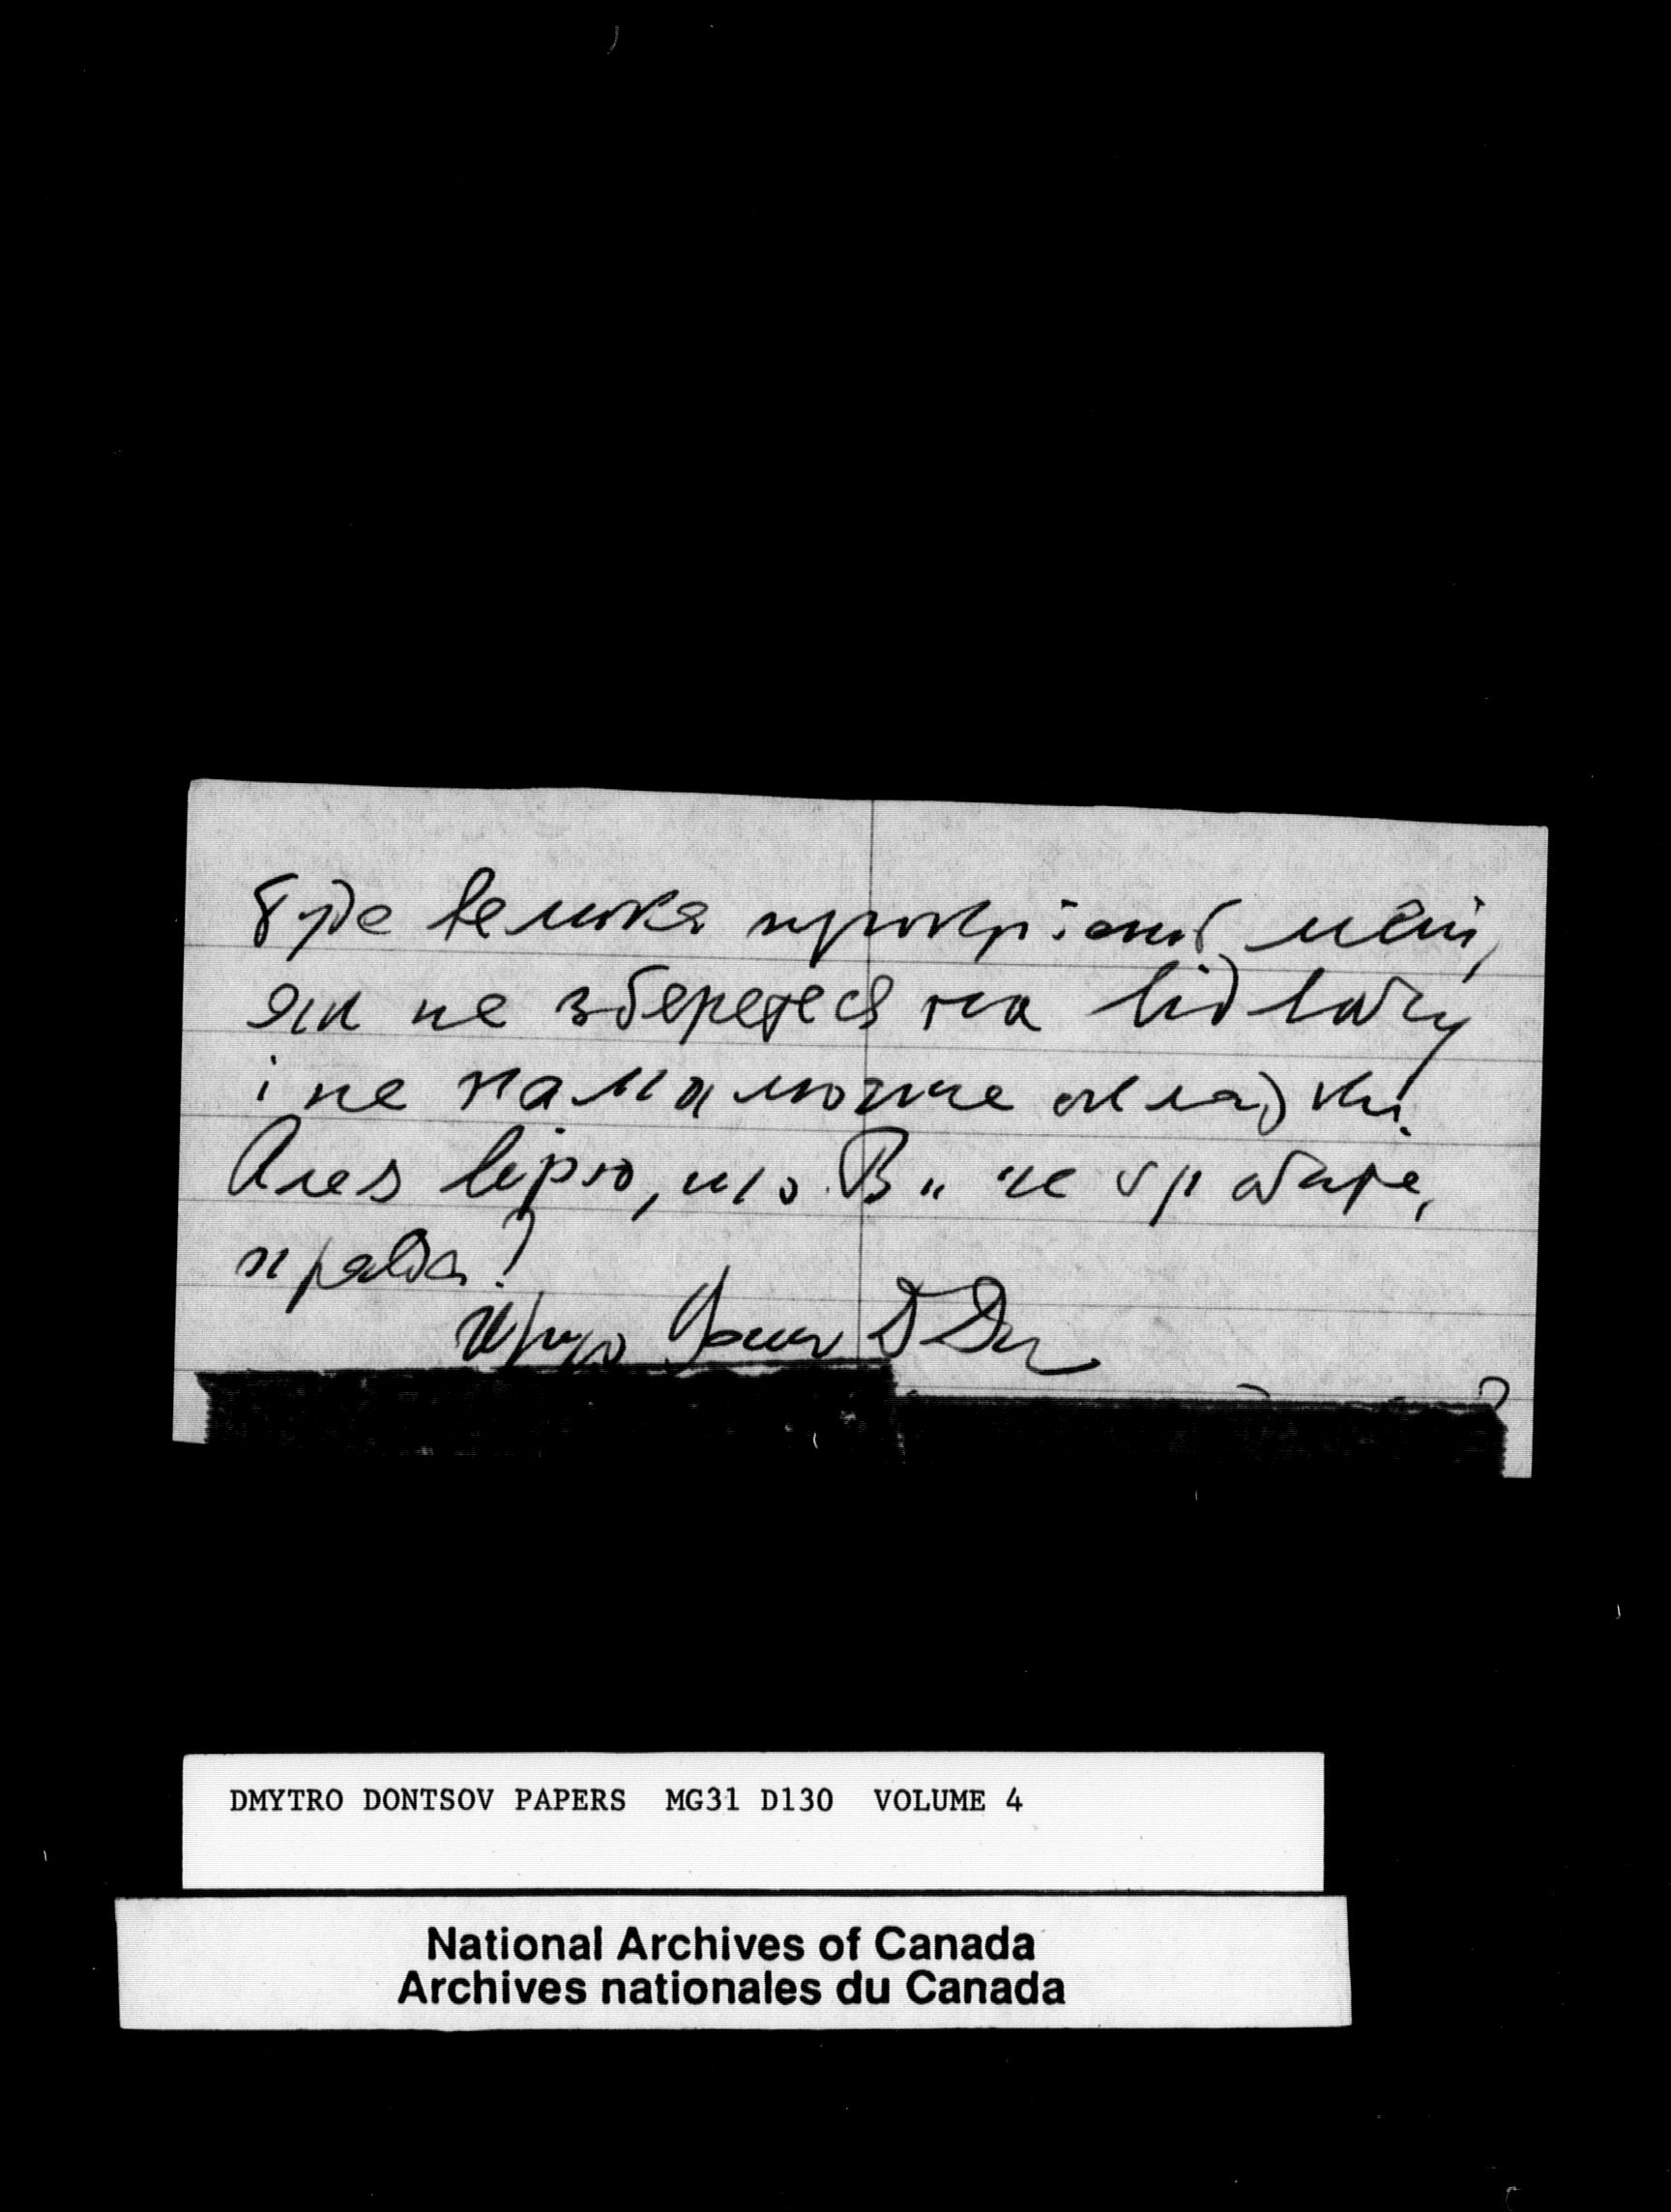 буде велика прикрість мені,
як не зберетеся на відвагу
і не намалюєте окладки.
Але вірю, що Ви це зробите,
правда?
Щиро Ваш ДД
DMYTRO DONTSOV PAPERS MG31 D130 VOLUME 4
National Archives of Canada
Archives nationales du Canada